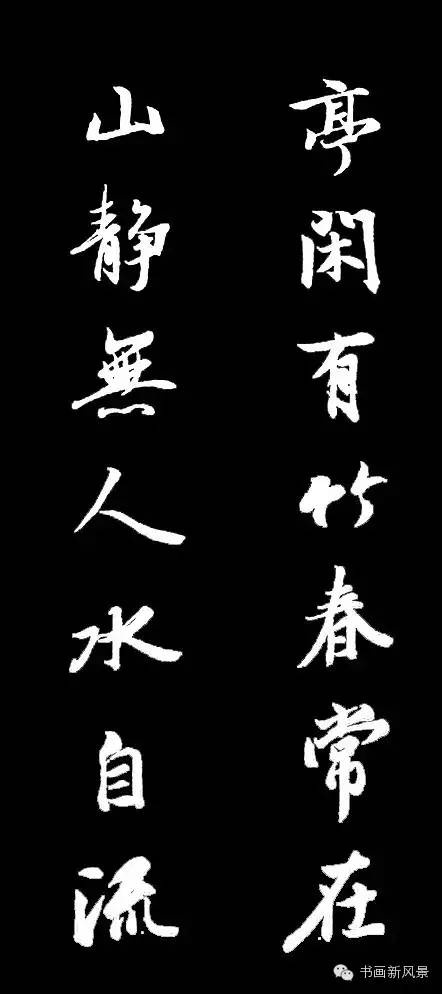 亭閑有竹春常在
山静無人水自流
书画新风景